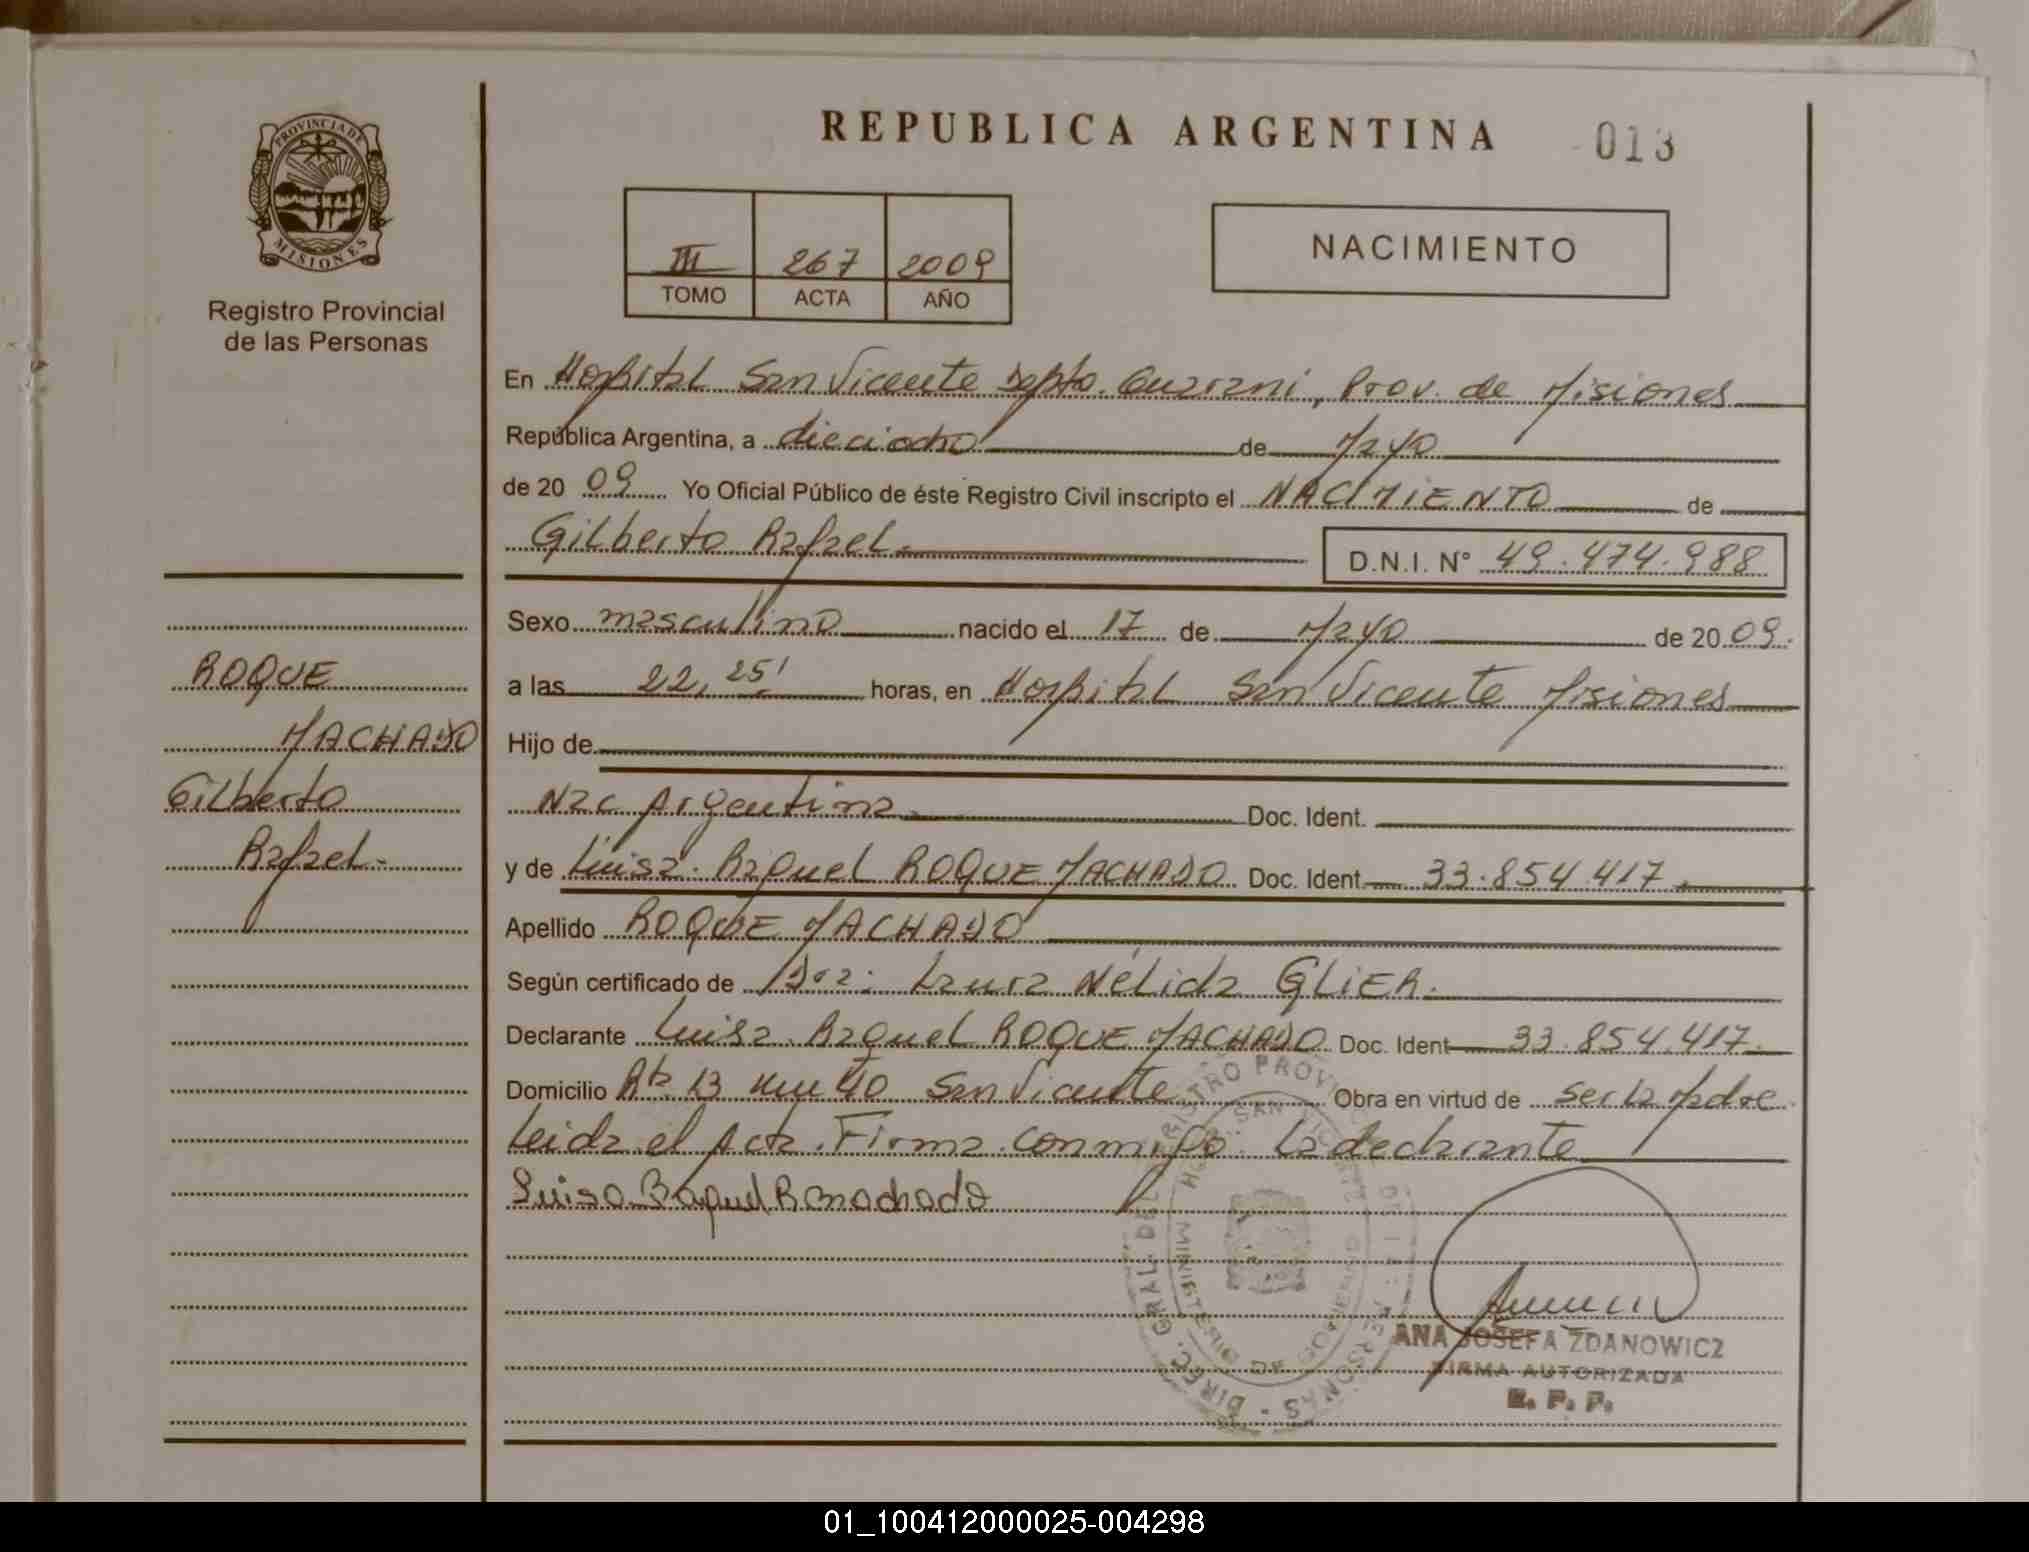 PROVINCIA DE
MISIONES
Registro Provincial
de las Personas
ROQUE
MACHADO
Gilberto
Rafael.-
REPUBLICA ARGENTINA 013
III 267 2009
TOMO ACTA AÑO
NACIMIENTO
En Hospital San Vicente Dpto. Guarani, Prov. de Misiones
República Argentina, a dieciocho de Mayo
de 20 09 Yo Oficial Público de éste Registro Civil inscripto el NACIMIENTO de
Gilberto Rafael.
D.N.I. N° 49.474.988
Sexo masculino nacido el 17 de Mayo de 20 09.
a las 22,25' horas, en Hospital San Vicente Misiones
Hijo de
Nac Argentina. Doc. Ident.
y de Luisa Raquel ROQUE MACHADO Doc. Ident. 33.854.417.
Apellido ROQUE MACHADO
Según certificado de Dra: Laura Nélida GLIER.
Declarante Luisa Raquel ROQUE MACHADO Doc. Ident 33.854.417.
Domicilio Rta 13 Km 40 San Vicente Obra en virtud de ser la Madre
Leida el Acta. Firma conmigo la declarante
Luisa Raquel R Machado
DIREC. GRAL. DEL REGISTRO PROVINCIAL DE LAS PERSONAS
SAN VICENTE
MINISTERIO DE GOBIERNO
ANA JOSEFA ZDANOWICZ
FIRMA AUTORIZADA
R. P. P.
01_100412000025-004298